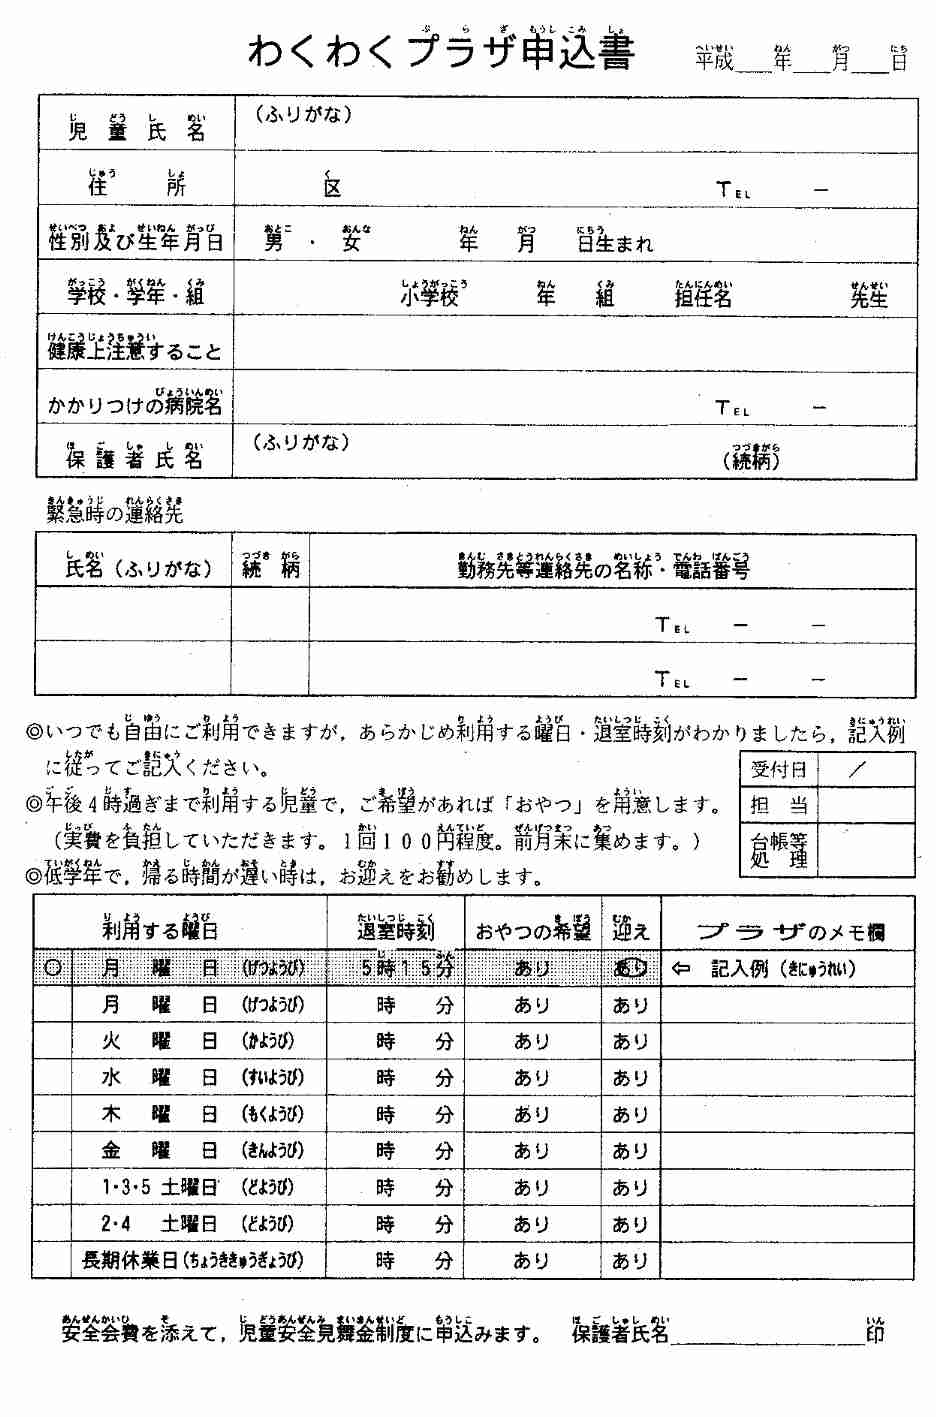 わくわくプラザ申込書 平成___年___月___日
児童氏名 (ふりがな)
住所 区 TEL －
性別及び生年月日 男・女 年 月 日生まれ
学校・学年・組 小学校 年 組 担任名 先生
健康上注意すること
かかりつけの病院名 TEL －
保護者氏名 (ふりがな) (続柄)
緊急時の連絡先
氏名(ふりがな) 続柄 勤務先等連絡先の名称・電話番号
TEL － －
TEL － －
◎いつでも自由にご利用できますが，あらかじめ利用する曜日・退室時刻がわかりましたら，記入例
に従ってご記入ください。
◎午後4時過ぎまで利用する児童で，ご希望があれば「おやつ」を用意します。
(実費を負担していただきます。1回100円程度。前月末に集めます。)
◎低学年で，帰る時間が遅い時は，お迎えをお勧めします。
受付日 ／
担当
台帳等
処理
利用する曜日 退室時刻 おやつの希望 迎え プラザのメモ欄
○ 月曜日(げつようび) 5時15分 あり あり ⇦ 記入例(きにゅうれい)
月曜日(げつようび) 時 分 あり あり
火曜日(かようび) 時 分 あり あり
水曜日(すいようび) 時 分 あり あり
木曜日(もくようび) 時 分 あり あり
金曜日(きんようび) 時 分 あり あり
1・3・5 土曜日(どようび) 時 分 あり あり
2・4 土曜日(どようび) 時 分 あり あり
長期休業日(ちょうききゅうぎょうび) 時 分 あり あり
安全会費を添えて，児童安全見舞金制度に申込みます。 保護者氏名__________印